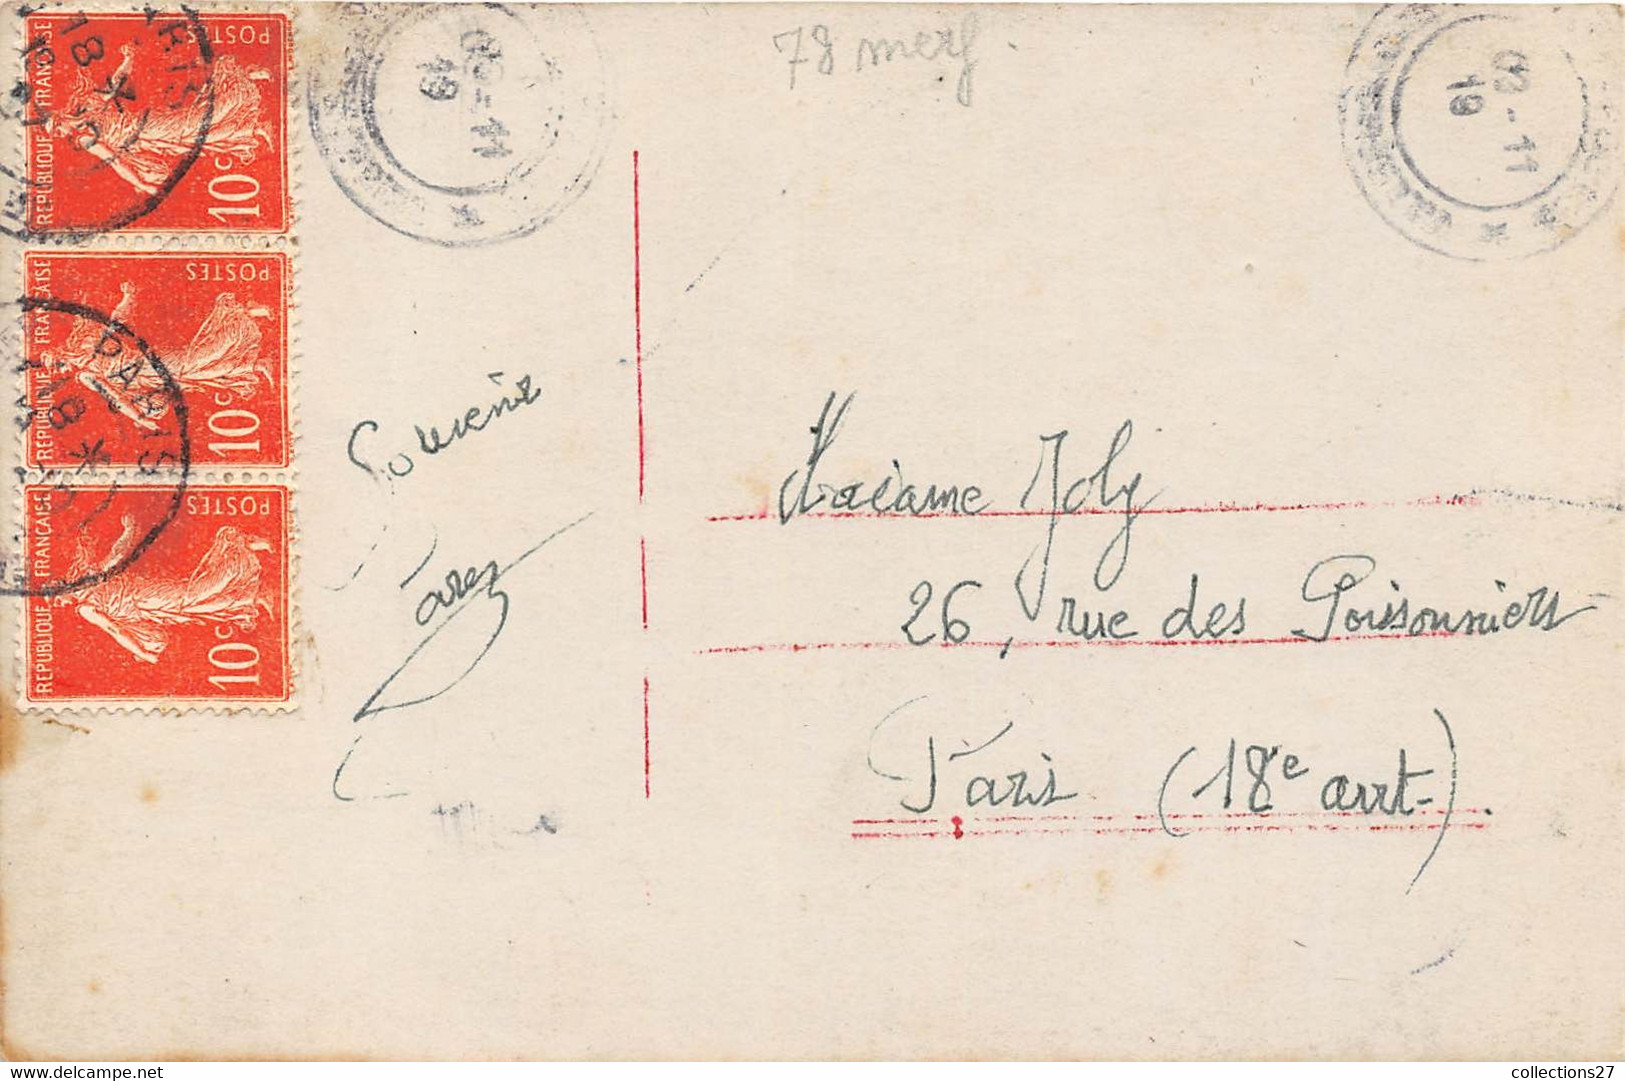 78 merf.
03-11
19
03-11
19
REPUBLIQUE FRANÇAISE
POSTES
10c
REPUBLIQUE FRANÇAISE
POSTES
10c
REPUBLIQUE FRANÇAISE
POSTES
10c
PARIS
18
PARIS
18
Souvenir
Madame Joly
26, rue des Poissonniers
Paris (18e arrt.).
collections27